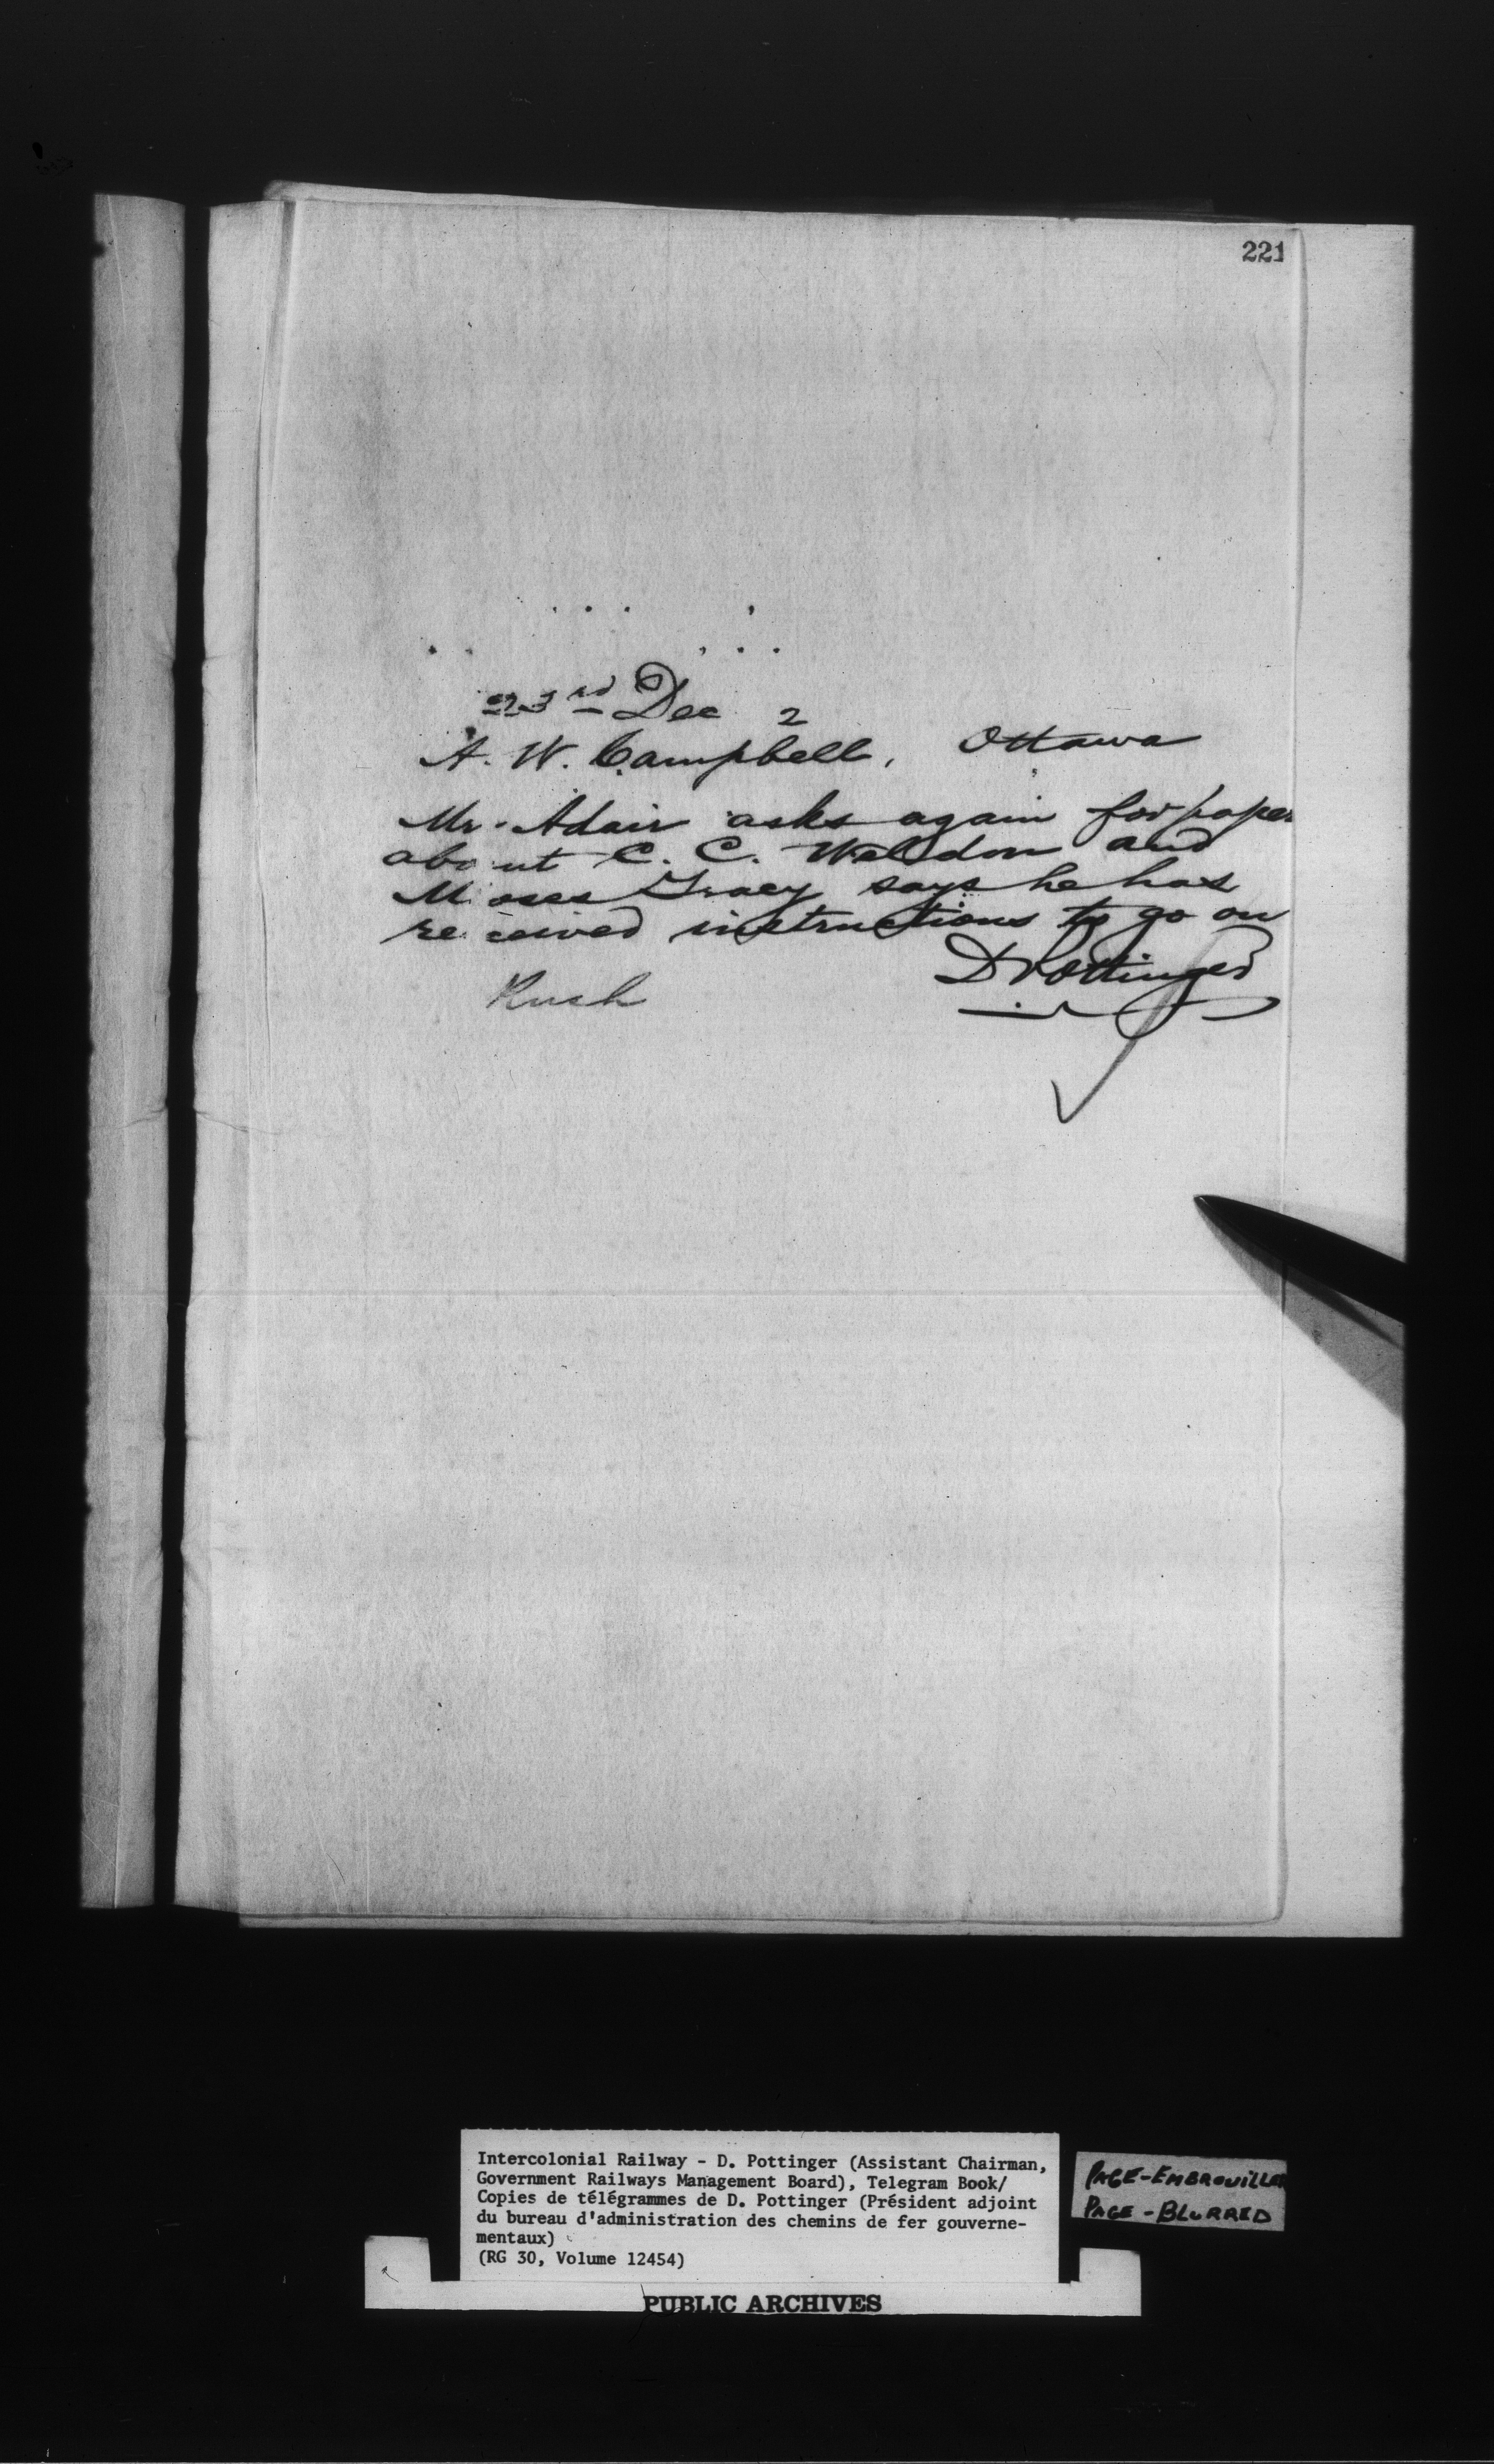 221
23rd Dec 2
A. W. Campbell, Ottawa
Mr. Adair asks again for paper
about C. C. Weldon and
Moses Tracy says he has
received instructions to go on
D Pottinger
Rush
Intercolonial Railway - D. Pottinger (Assistant Chairman,
Government Railways Management Board), Telegram Book/
Copies de télégrammes de D. Pottinger (Président adjoint
du bureau d'administration des chemins de fer gouverne-
mentaux)
(RG 30, Volume 12454)
PAGE-EMBROUILLEE
PAGE-BLURRED
PUBLIC ARCHIVES